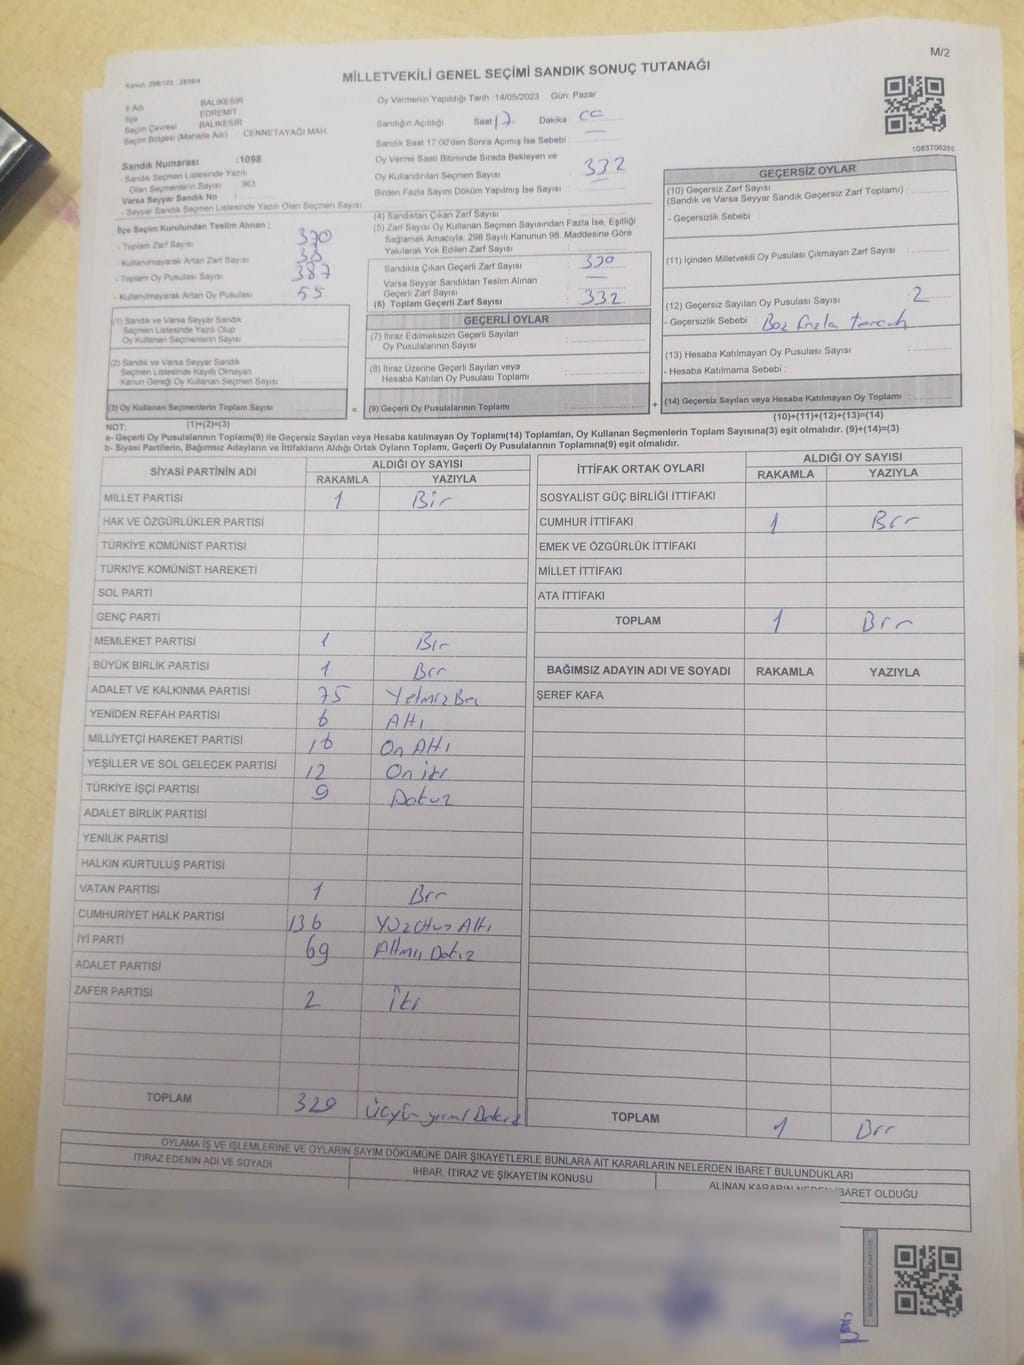 M/2
Kanun: 298/105 , 2839/4
MİLLETVEKİLİ GENEL SEÇİMİ SANDIK SONUÇ TUTANAĞI
1083706255
İl Adı BALIKESİR
İlçe EDREMİT
Seçim Çevresi BALIKESİR
Seçim Bölgesi (Mahalle Adı) CENNETAYAĞI MAH.
Sandık Numarası :1098
- Sandık Seçmen Listesinde Yazılı
Olan Seçmenlerin Sayısı 363
Varsa Seyyar Sandık No :
- Seyyar Sandık Seçmen Listesinde Yazılı Olan Seçmen Sayısı
İlçe Seçim Kurulundan Teslim Alınan ;
- Toplam Zarf Sayısı 370
- Kullanılmayarak Artan Zarf Sayısı 38
- Toplam Oy Pusulası Sayısı 387
- Kullanılmayarak Artan Oy Pusulası 55
(1) Sandık ve Varsa Seyyar Sandık
Seçmen Listesinde Yazılı Olup
Oy Kullanan Seçmenlerin Sayısı
(2) Sandık ve Varsa Seyyar Sandık
Seçmen Listesinde Kayıtlı Olmayan
Kanun Gereği Oy Kullanan Seçmen Sayısı
(3) Oy Kullanan Seçmenlerin Toplam Sayısı =
(1)+(2)=(3)
Oy Vermenin Yapıldığı Tarih :14/05/2023 Gün: Pazar
Sandığın Açıldığı Saat 17 Dakika
Sandık Saat 17:00'den Sonra Açılmış İse Sebebi :
Oy Verme Saati Bitiminde Sırada Bekleyen ve
Oy Kullandırılan Seçmen Sayısı : 332
Birden Fazla Sayım Döküm Yapılmış İse Sayısı :
(4) Sandıktan Çıkan Zarf Sayısı
(5) Zarf Sayısı Oy Kullanan Seçmen Sayısından Fazla İse, Eşitliği
Sağlamak Amacıyla, 298 Sayılı Kanunun 98. Maddesine Göre
Yakılarak Yok Edilen Zarf Sayısı :
Sandıkta Çıkan Geçerli Zarf Sayısı : 330
Varsa Seyyar Sandıktan Teslim Alınan
Geçerli Zarf Sayısı
(6) Toplam Geçerli Zarf Sayısı : 332
GEÇERLİ OYLAR
(7) İtiraz Edilmeksizin Geçerli Sayılan
Oy Pusulalarının Sayısı
(8) İtiraz Üzerine Geçerli Sayılan veya
Hesaba Katılan Oy Pusulası Toplamı
(9) Geçerli Oy Pusulalarının Toplamı : +
GEÇERSİZ OYLAR
(10) Geçersiz Zarf Sayısı
(Sandık ve Varsa Seyyar Sandık Geçersiz Zarf Toplamı) :
- Geçersizlik Sebebi :
(11) İçinden Milletvekili Oy Pusulası Çıkmayan Zarf Sayısı :
(12) Geçersiz Sayılan Oy Pusulası Sayısı : 2
- Geçersizlik Sebebi :
(13) Hesaba Katılmayan Oy Pusulası Sayısı :
- Hesaba Katılmama Sebebi :
(14) Geçersiz Sayılan veya Hesaba Katılmayan Oy Toplamı :
(10)+(11)+(12)+(13)=(14)
NOT:
a- Geçerli Oy Pusulalarının Toplamı(9) ile Geçersiz Sayılan veya Hesaba katılmayan Oy Toplamı(14) Toplamları, Oy Kullanan Seçmenlerin Toplam Sayısına(3) eşit olmalıdır. (9)+(14)=(3)
b- Siyasi Partilerin, Bağımsız Adayların ve İttifakların Aldığı Ortak Oyların Toplamı, Geçerli Oy Pusulalarının Toplamına(9) eşit olmalıdır.
SİYASİ PARTİNİN ADI ALDIĞI OY SAYISI
RAKAMLA YAZIYLA
MİLLET PARTİSİ 1 Bir
HAK VE ÖZGÜRLÜKLER PARTİSİ
TÜRKİYE KOMÜNİST PARTİSİ
TÜRKİYE KOMÜNİST HAREKETİ
SOL PARTİ
GENÇ PARTİ
MEMLEKET PARTİSİ 1 Bir
BÜYÜK BİRLİK PARTİSİ 1 Bir
ADALET VE KALKINMA PARTİSİ 75 Yetmiş Beş
YENİDEN REFAH PARTİSİ 6 Altı
MİLLİYETÇİ HAREKET PARTİSİ 16 On Altı
YEŞİLLER VE SOL GELECEK PARTİSİ 12 On iki
TÜRKİYE İŞÇİ PARTİSİ 9 Dokuz
ADALET BİRLİK PARTİSİ
YENİLİK PARTİSİ
HALKIN KURTULUŞ PARTİSİ
VATAN PARTİSİ 1 Bir
CUMHURİYET HALK PARTİSİ 136 Yüz Otuz Altı
İYİ PARTİ 69 Altmış Dokuz
ADALET PARTİSİ
ZAFER PARTİSİ 2 İki
TOPLAM 329 Üçyüz yirmi Dokuz
İTTİFAK ORTAK OYLARI ALDIĞI OY SAYISI
RAKAMLA YAZIYLA
SOSYALİST GÜÇ BİRLİĞİ İTTİFAKI
CUMHUR İTTİFAKI 1 Bir
EMEK VE ÖZGÜRLÜK İTTİFAKI
MİLLET İTTİFAKI
ATA İTTİFAKI
TOPLAM 1 Bir
BAĞIMSIZ ADAYIN ADI VE SOYADI RAKAMLA YAZIYLA
ŞEREF KAFA
TOPLAM 1 Bir
OYLAMA İŞ VE İŞLEMLERİNE VE OYLARIN SAYIM DÖKÜMÜNE DAİR ŞİKAYETLERLE BUNLARA AİT KARARLARIN NELERDEN İBARET BULUNDUKLARI
İTİRAZ EDENİN ADI VE SOYADI İHBAR, İTİRAZ VE ŞİKAYETİN KONUSU ALINAN KARARIN NEDEN İBARET OLDUĞU